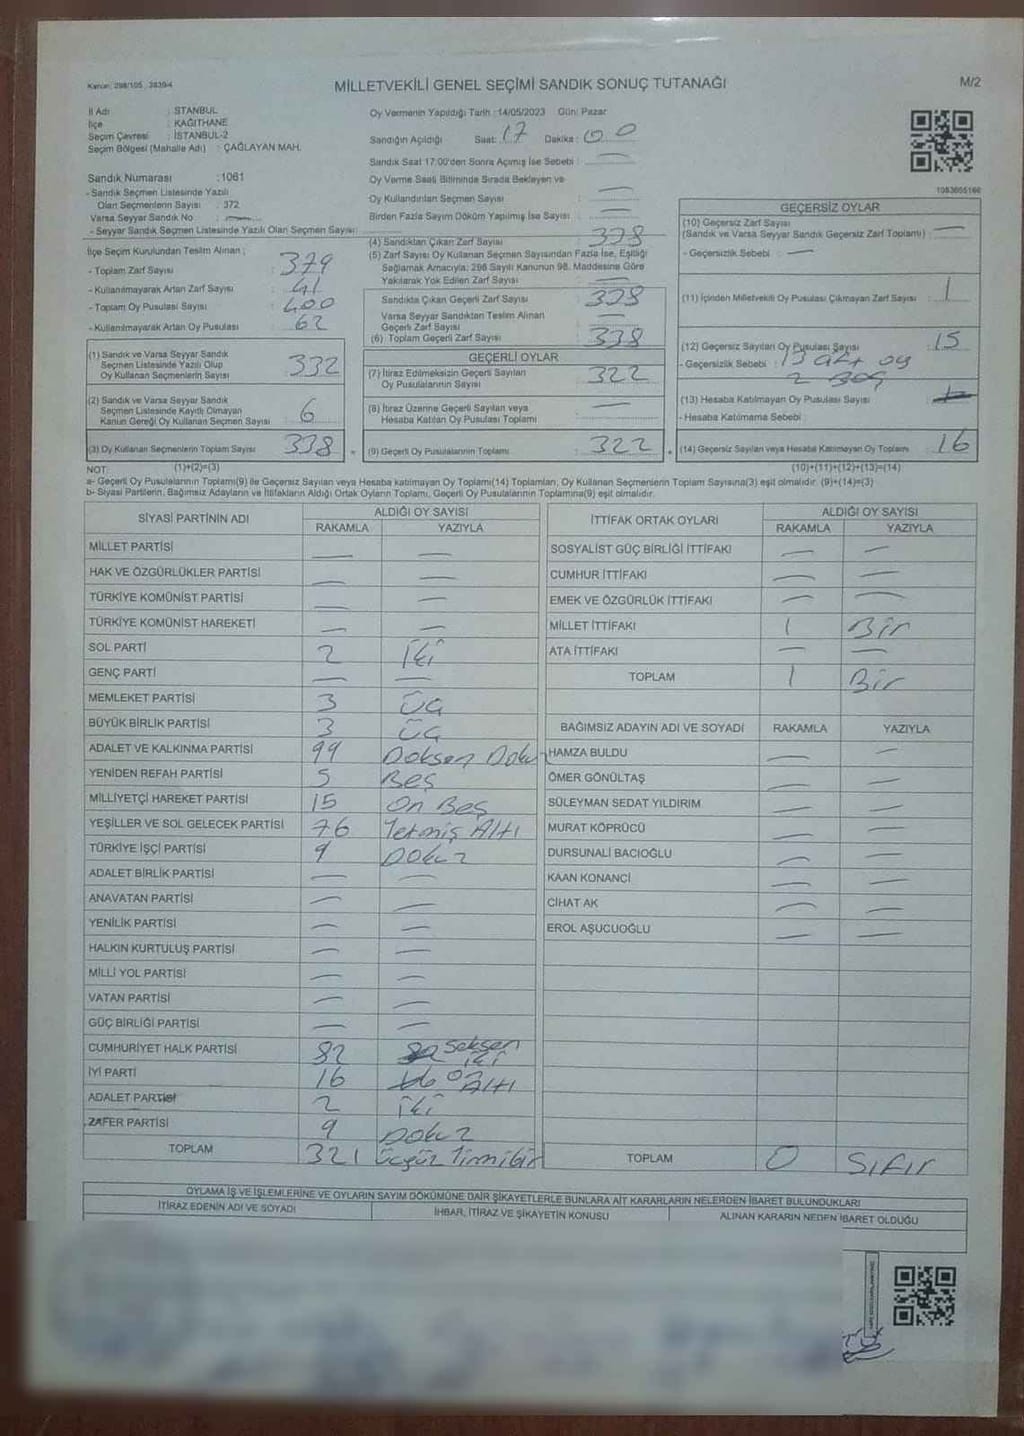 Kanun: 298/105 , 2839/4
MİLLETVEKİLİ GENEL SEÇİMİ SANDIK SONUÇ TUTANAĞI
M/2
İl Adı : İSTANBUL
İlçe : KAĞITHANE
Seçim Çevresi : İSTANBUL-2
Seçim Bölgesi (Mahalle Adı) : ÇAĞLAYAN MAH.
Sandık Numarası : 1061
- Sandık Seçmen Listesinde Yazılı
Olan Seçmenlerin Sayısı : 372
Varsa Seyyar Sandık No : —
- Seyyar Sandık Seçmen Listesinde Yazılı Olan Seçmen Sayısı:
Oy Vermenin Yapıldığı Tarih : 14/05/2023 Gün: Pazar
Sandığın Açıldığı Saat: 17 Dakika: 00
Sandık Saat 17:00'den Sonra Açımış İse Sebebi : —
Oy Verme Saati Bitiminde Sırada Bekleyen ve
Oy Kullandırılan Seçmen Sayısı : —
Birden Fazla Sayım Döküm Yapılmış İse Sayısı : —
1083605166
İlçe Seçim Kurulundan Teslim Alınan ;
- Toplam Zarf Sayısı : 379
- Kullanılmayarak Artan Zarf Sayısı : 41
- Toplam Oy Pusulası Sayısı : 400
- Kullanılmayarak Artan Oy Pusulası : 62
(1) Sandık ve Varsa Seyyar Sandık
Seçmen Listesinde Yazılı Olup
Oy Kullanan Seçmenlerin Sayısı : 332
(2) Sandık ve Varsa Seyyar Sandık
Seçmen Listesinde Kayıtlı Olmayan
Kanun Gereği Oy Kullanan Seçmen Sayısı : 6
(3) Oy Kullanan Seçmenlerin Toplam Sayısı : 338
(4) Sandıktan Çıkan Zarf Sayısı : 338
(5) Zarf Sayısı Oy Kullanan Seçmen Sayısından Fazla İse, Eşitliği
Sağlamak Amacıyla; 298 Sayılı Kanunun 98. Maddesine Göre
Yakılarak Yok Edilen Zarf Sayısı : —
Sandıkta Çıkan Geçerli Zarf Sayısı : 338
Varsa Seyyar Sandıktan Teslim Alınan
Geçerli Zarf Sayısı : —
(6) Toplam Geçerli Zarf Sayısı : 338
GEÇERLİ OYLAR
(7) İtiraz Edilmeksizin Geçerli Sayılan
Oy Pusulalarının Sayısı : 322
(8) İtiraz Üzerine Geçerli Sayılan veya
Hesaba Katılan Oy Pusulası Toplamı : —
(9) Geçerli Oy Pusulalarının Toplamı : 322
GEÇERSİZ OYLAR
(10) Geçersiz Zarf Sayısı
(Sandık ve Varsa Seyyar Sandık Geçersiz Zarf Toplamı) : —
- Geçersizlik Sebebi : —
(11) İçinden Milletvekili Oy Pusulası Çıkmayan Zarf Sayısı : 1
(12) Geçersiz Sayılan Oy Pusulası Sayısı : 15
- Geçersizlik Sebebi : 13 çift oy
2 Boş
(13) Hesaba Katılmayan Oy Pusulası Sayısı :
- Hesaba Katılmama Sebebi :
(14) Geçersiz Sayılan veya Hesaba Katılmayan Oy Toplamı : 16
NOT: (1)+(2)=(3) (10)+(11)+(12)+(13)=(14)
a- Geçerli Oy Pusulalarının Toplamı(9) ile Geçersiz Sayılan veya Hesaba katılmayan Oy Toplamı(14) Toplamları, Oy Kullanan Seçmenlerin Toplam Sayısına(3) eşit olmalıdır. (9)+(14)=(3)
b- Siyasi Partilerin, Bağımsız Adayların ve İttifakların Aldığı Ortak Oyların Toplamı, Geçerli Oy Pusulalarının Toplamına(9) eşit olmalıdır.
SİYASİ PARTİNİN ADI ALDIĞI OY SAYISI
RAKAMLA YAZIYLA
MİLLET PARTİSİ — —
HAK VE ÖZGÜRLÜKLER PARTİSİ — —
TÜRKİYE KOMÜNİST PARTİSİ — —
TÜRKİYE KOMÜNİST HAREKETİ — —
SOL PARTİ 2 İki
GENÇ PARTİ — —
MEMLEKET PARTİSİ 3 Üç
BÜYÜK BİRLİK PARTİSİ 3 Üç
ADALET VE KALKINMA PARTİSİ 99 Doksan Doku
YENİDEN REFAH PARTİSİ 5 Beş
MİLLİYETÇİ HAREKET PARTİSİ 15 On Beş
YEŞİLLER VE SOL GELECEK PARTİSİ 76 Yetmiş Altı
TÜRKİYE İŞÇİ PARTİSİ 9 Dokuz
ADALET BİRLİK PARTİSİ — —
ANAVATAN PARTİSİ — —
YENİLİK PARTİSİ — —
HALKIN KURTULUŞ PARTİSİ — —
MİLLİ YOL PARTİSİ — —
VATAN PARTİSİ — —
GÜÇ BİRLİĞİ PARTİSİ — —
CUMHURİYET HALK PARTİSİ 82 Seksen iki
İYİ PARTİ 16 On Altı
ADALET PARTİSİ 2 İki
ZAFER PARTİSİ 9 Dokuz
TOPLAM 321 Üçyüz Yirmibir
İTTİFAK ORTAK OYLARI ALDIĞI OY SAYISI
RAKAMLA YAZIYLA
SOSYALİST GÜÇ BİRLİĞİ İTTİFAKI — —
CUMHUR İTTİFAKI — —
EMEK VE ÖZGÜRLÜK İTTİFAKI — —
MİLLET İTTİFAKI 1 Bir
ATA İTTİFAKI — —
TOPLAM 1 Bir
BAĞIMSIZ ADAYIN ADI VE SOYADI RAKAMLA YAZIYLA
HAMZA BULDU — —
ÖMER GÖNÜLTAŞ — —
SÜLEYMAN SEDAT YILDIRIM — —
MURAT KÖPRÜCÜ — —
DURSUNALİ BACIOĞLU — —
KAAN KONANCİ — —
CİHAT AK — —
EROL AŞUCUOĞLU — —
TOPLAM 0 Sıfır
OYLAMA İŞ VE İŞLEMLERİNE VE OYLARIN SAYIM DÖKÜMÜNE DAİR ŞİKAYETLERLE BUNLARA AİT KARARLARIN NELERDEN İBARET BULUNDUKLARI
İTİRAZ EDENİN ADI VE SOYADI İHBAR, İTİRAZ VE ŞİKAYETİN KONUSU ALINAN KARARIN NEDEN İBARET OLDUĞU